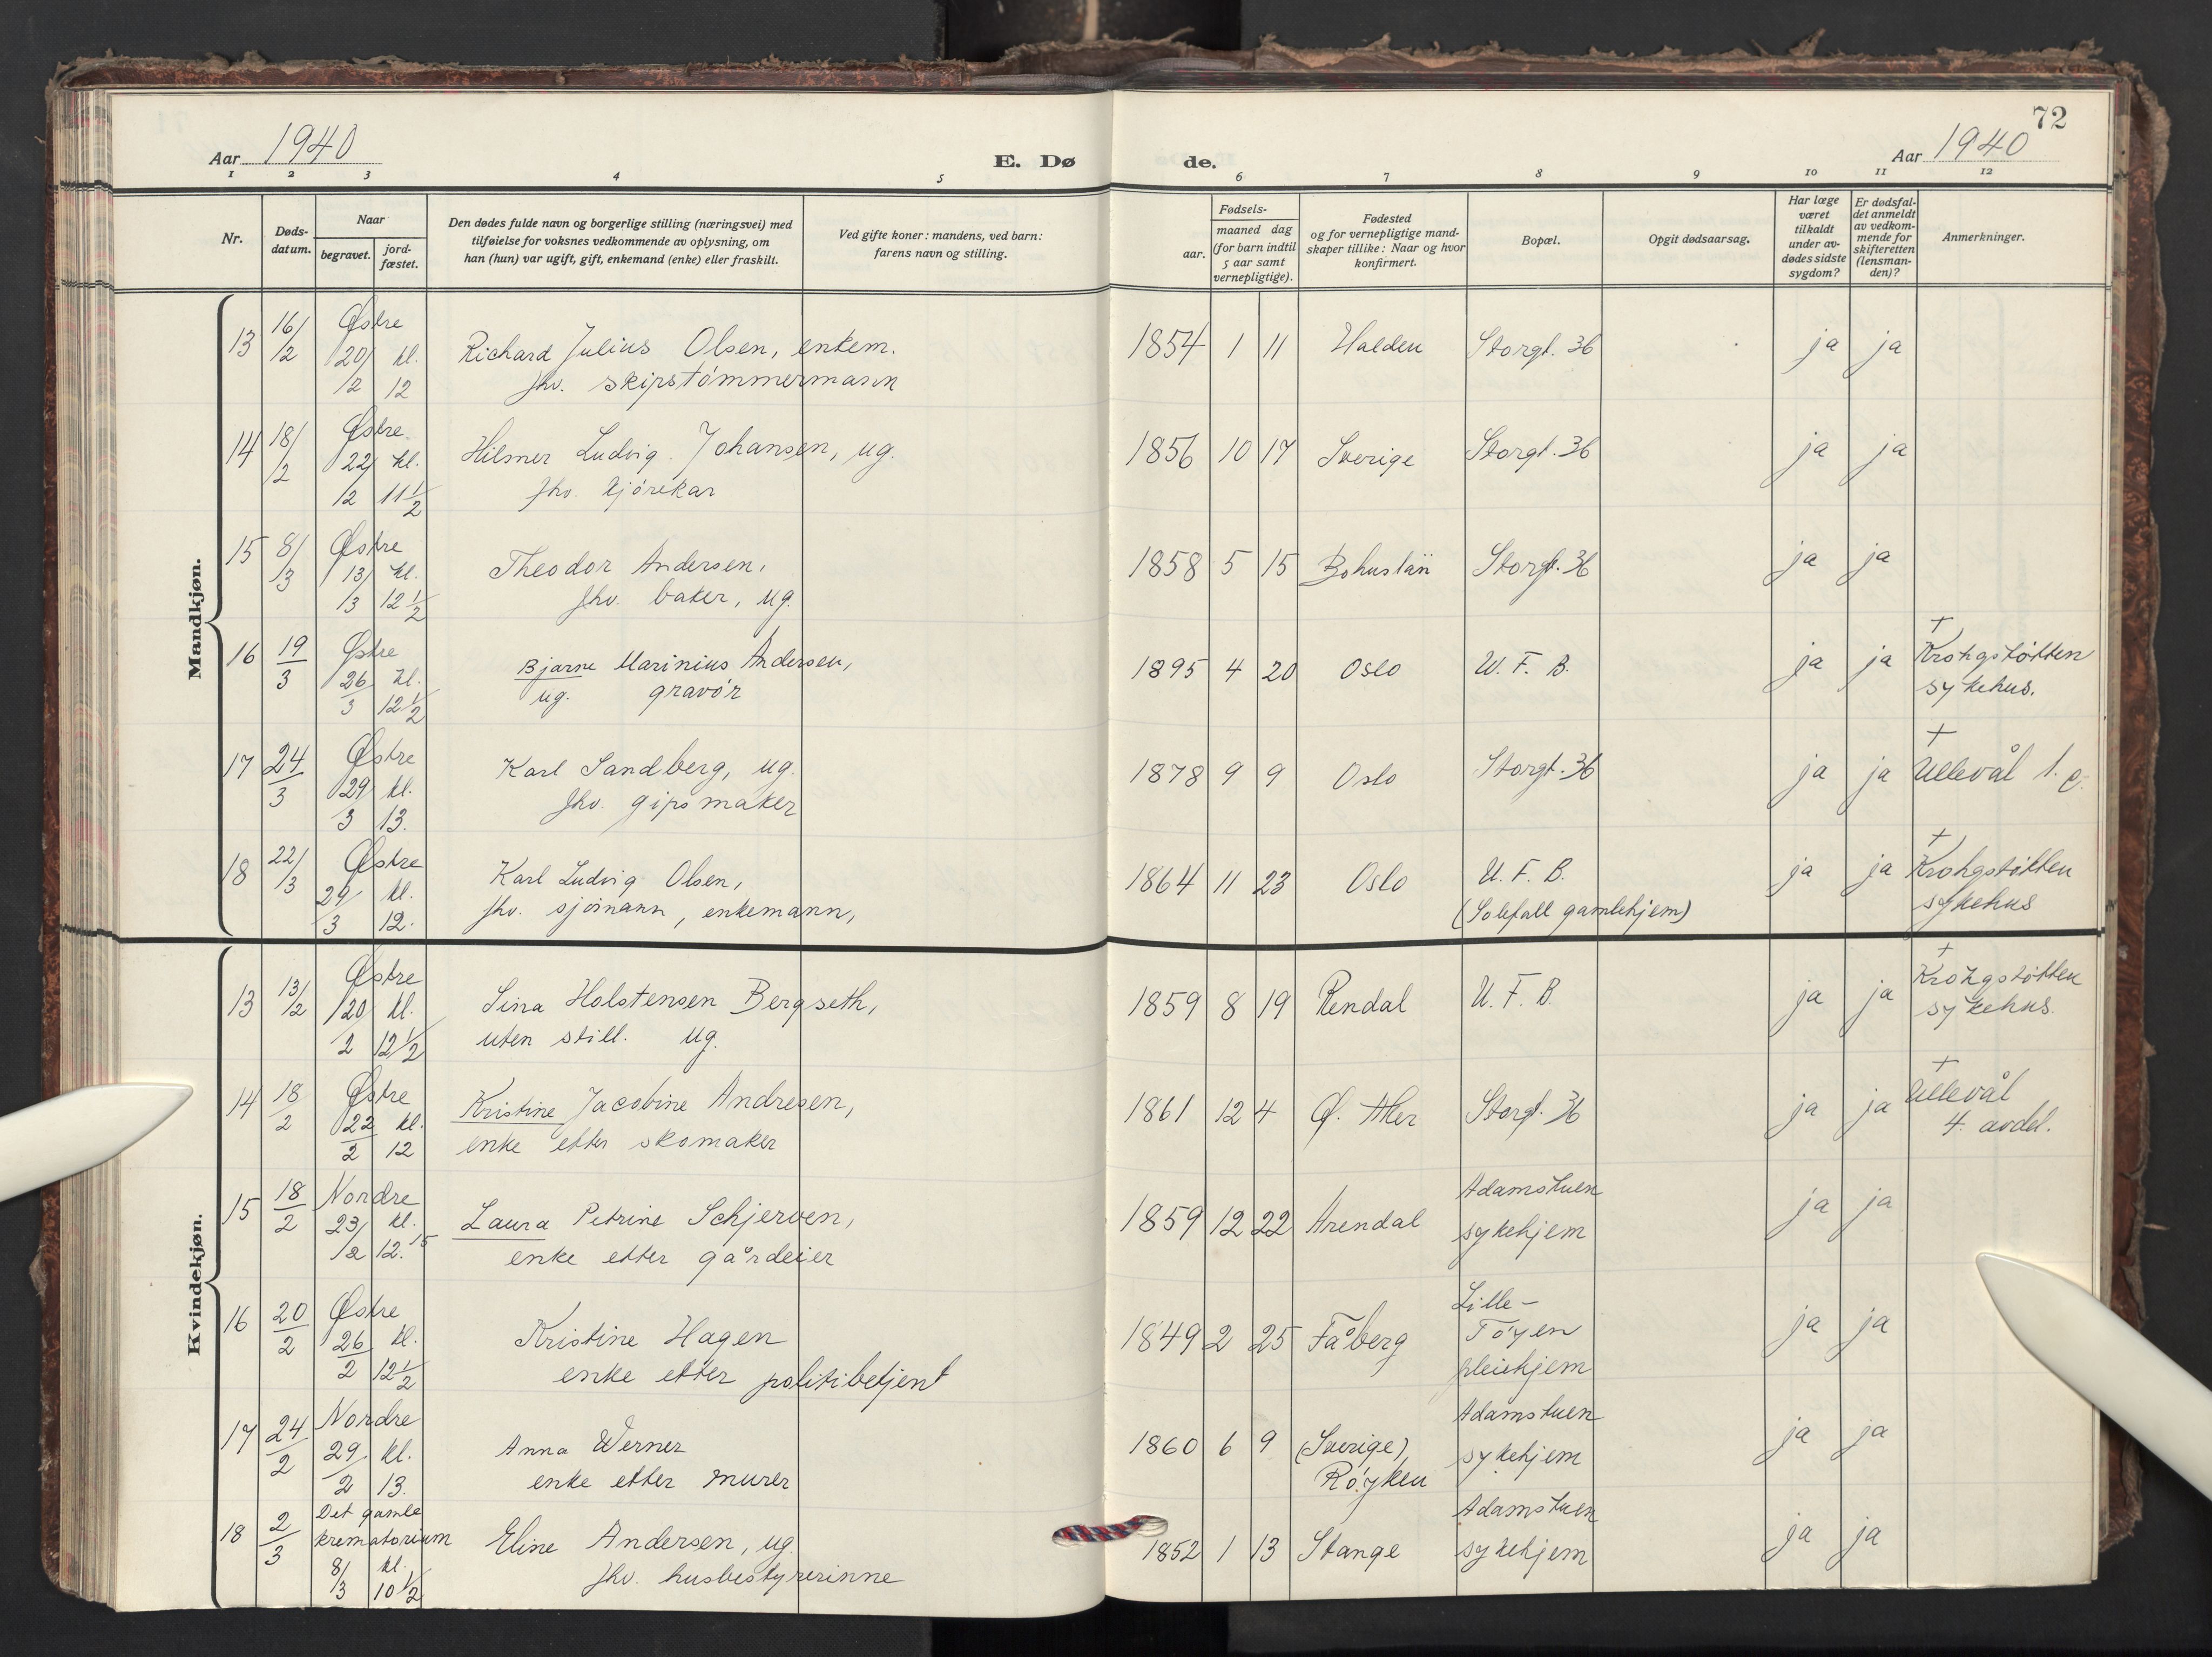 72
Aar 1940
E. Dø
de.
Aar 1940
1 2 3 4 5 6 7 8 9 10 11 12
Nr.
Døds-
datum.
Naar
begravet.
jord-
fæstet.
Den dødes fulde navn og borgerlige stilling (næringsvei) med
tilføielse for voksnes vedkommende av oplysning, om
han (hun) var ugift, gift, enkemand (enke) eller fraskilt.
Ved gifte koner: mandens, ved barn:
farens navn og stilling.
Fødsels-
aar.
maaned dag
(for barn indtil
5 aar samt
vernepligtige).
Fødested
og for vernepligtige mand-
skaper tillike: Naar og hvor
konfirmert.
Bopæl.
Opgit dødsaarsag.
Har læge
været
tilkaldt
under av-
dødes sidste
sygdom?
Er dødsfal-
det anmeldt
av vedkom-
mende for
skifteretten
(lensman-
den)?
Anmerkninger.
Mandkjøn.
13 16/2 Østre 20/2 kl. 12
Richard Julius Olsen, enkem.
fhv. skipstømmermann
1854 1 11 Halden Storgt. 36 ja ja
14 18/2 Østre 22/2 kl. 11 1/2
Hilmer Ludvig Johansen, ug.
fhv. kjørekar
1856 10 17 Sverige Storgt. 36 ja ja
15 8/3 Østre 13/3 kl. 12 1/2
Theodor Andersen,
fhv. baker, ug.
1858 5 15 Bohuslän Storgt. 36 ja ja
16 19/3 Østre 26/3 kl. 12 1/2
Bjarne Marinius Andersen,
ug. gravør
1895 4 20 Oslo U. F. B. ja ja
+
Krohgstøtten
sykehus.
17 24/3 Østre 29/3 kl. 13.
Karl Sandberg, ug.
fhv. gipsmaker
1878 9 9 Oslo Storgt. 36 ja ja
+
Ullevål 1.
18 22/3 Østre 29/3 kl. 12.
Karl Ludvig Olsen,
fhv. sjømann, enkemann,
1864 11 23 Oslo U. F. B.
(Solefall gamlehjem)
ja ja
+
Krohgstøtten
sykehus
Kvindekjøn.
13 13/2 Østre 20/2 kl. 12 1/2
Sina Holstensen Bergseth,
uten still. ug.
1859 8 19 Rendal U. F. B. ja ja
+
Krohgstøtten
sykehus.
14 18/2 Østre 22/2 kl. 12
Kristine Jacobine Andresen,
enke etter skomaker
1861 12 4 Ø. Aker Storgt. 36 ja ja
+
Ullevål
4. avdel.
15 18/2 Nordre 23/2 kl. 12.15
Laura Petrine Schjerven,
enke etter gårdeier
1859 12 22 Arendal
Adamstuen
sykehjem
ja ja
16 20/2 Østre 26/2 kl. 12 1/2
Kristine Hagen
enke etter politibetjent
1849 2 25 Fåberg
Lille-
Tøyen
pleiehjem
ja ja
17 24/2 Nordre 29/2 kl. 13.
Anna Werner
enke etter murer
1860 6 9 (Sverige),
Røyken
Adamstuen
sykehjem
ja ja
18 2/3 Det gamle
krematorium
8/3 kl. 10 1/2
Eline Andersen, ug.
fhv. husbestyrerinne
1852 1 13 Stange
Adamstuen
sykehjem
ja ja